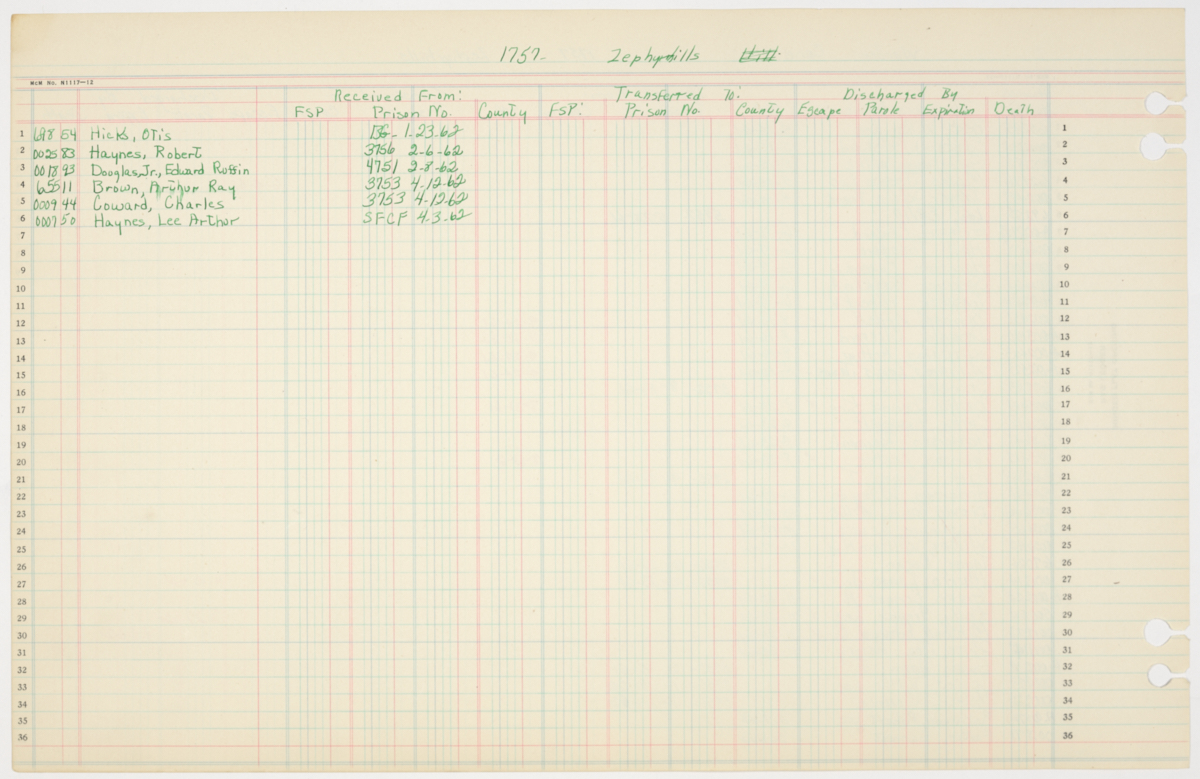 1757- Zephyrhills
McM No. N1117-12
Received From: Transferred To: Discharged By
FSP Prison No. County FSP: Prison No. County Escape Parole Expiration Death
1 698 54 Hicks, Otis 1-23-62 1
2 0025 83 Haynes, Robert 3756 2-6-62 2
3 0018 93 Douglas, Jr., Edward Roffin 4751 2-8-62 3
4 655 11 Brown, Arthur Ray 3753 4-12-62 4
5 0009 44 Coward, Charles 3753 4-12-62 5
6 0007 50 Haynes, Lee Arthur SFCF 4-3-62 6
7 7
8 8
9 9
10 10
11 11
12 12
13 13
14 14
15 15
16 16
17 17
18 18
19 19
20 20
21 21
22 22
23 23
24 24
25 25
26 26
27 27
28 28
29 29
30 30
31 31
32 32
33 33
34 34
35 35
36 36